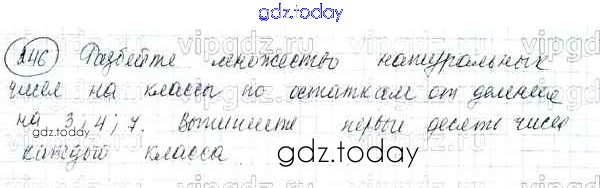 gdz.today
246 Разбейте множество натуральных
чисел на классы по остаткам от деления
на 3; 4; 7. Выпишите первые десять чисел
каждого класса.
gdz.today